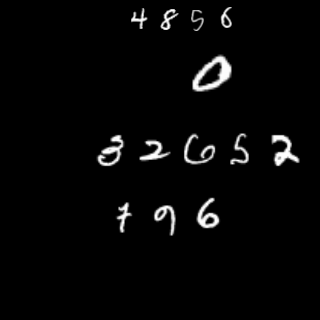 4 8 5 6
0
3 2 6 5 2
7 9 6